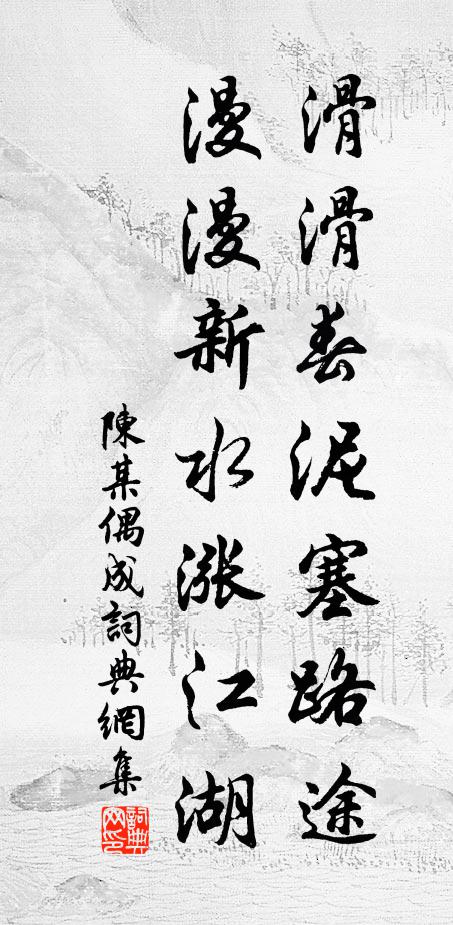 滑滑春泥塞路途
漫漫新水漲江湖
陳某偶成詞典網集
詞典網印